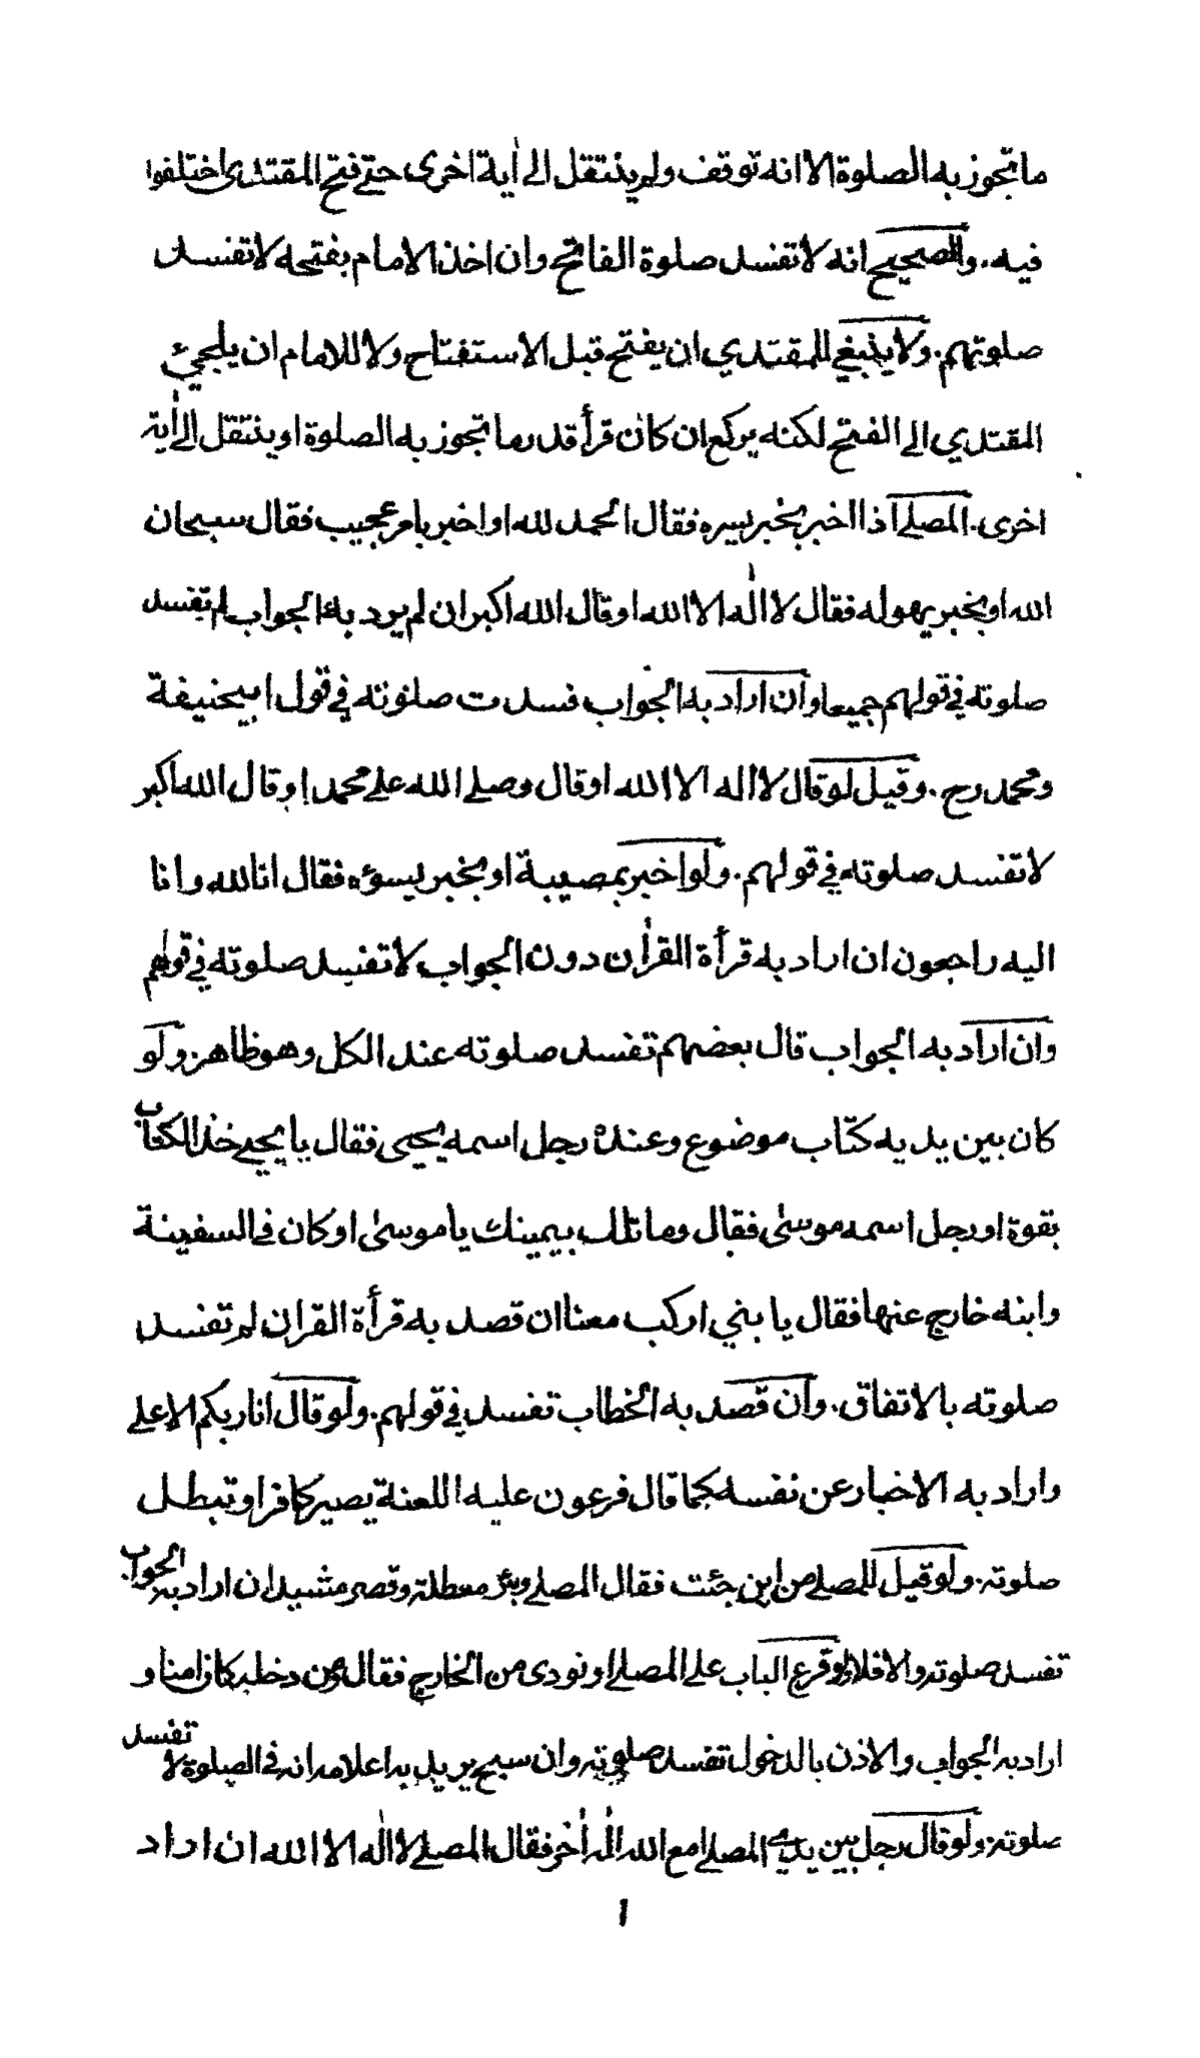 ما تجوز به الصلوة الا انه توقف ولم ينتقل الى اٰية اخرى حتے فتح المقتدى اختلفوا
فيه. والصحيح انه لا تفسد صلوة الفاتح وان اخذ الامام بفتحه لا تفسد
صلوتهم. ولا ينبغي للمقتدي ان يفتح قبل الاستفتاح ولا للامام ان يلجئ
المقتدي الى الفتح لكنه يركع ان كان قرأ قدر ما تجوز به الصلوة او ينتقل الى اٰية
اخرى. المصلے اذا اخبر بخبر يسره فقال الحمد لله او اخبر بامر عجيب فقال سبحان
الله او بخبر يهوله فقال لا الٰه الا الله او قال الله اكبر ان لم يرد به الجواب لم تفسد
صلوته في قولهم جميعا وان اراد به الجواب فسدت صلوته في قول ابيحنيفة
ومحمد رح. وقيل لو قال لا اله الا الله او قال وصلے الله علے محمد او قال الله اكبر
لا تفسد صلوته في قولهم. ولو اخبر بمصيبة او بخبر يسوؤه فقال انا لله وانا
اليه راجعون ان اراد به قرأة القراٰن دون الجواب لا تفسد صلوته في قولهم
وان اراد به الجواب قال بعضهم تفسد صلوته عند الكل وهو ظاهر. ولو
كان بين يديه كتاب موضوع وعنده رجل اسمه يحيى فقال يا يحيے خذ الكتاب
بقوة او رجل اسمه موسىٰ فقال وما تلك بيمينك يا موسىٰ او كان في السفينة
وابنه خارج عنها فقال يا بني اركب معنا ان قصد به قرأة القران لم تفسد
صلوته بالاتفاق. وان قصد به الخطاب تفسد في قولهم. ولو قال انا ربكم الاعلے
واراد به الاخبار عن نفسه كما قال فرعون عليه اللعنة يصير كافرا وتبطل
صلوته. ولو قيل للمصلے من اين جئت فقال المصلے وبئر معطلة وقصر مشيد ان اراد به الجواب
تفسد صلوته والا فلا. ولو قرع الباب على المصلے او نودى من الخارج فقال ومن دخله كان اٰمنا و
اراد به الجواب والاذن بالدخول تفسد صلوته وان سبح يريد به اعلامه انه في الصلوة لا تفسد
صلوته. ولو قال رجل بين يدي المصلے امع الله الٰه اٰخر فقال المصلے لا الٰه الا الله ان اراد
١